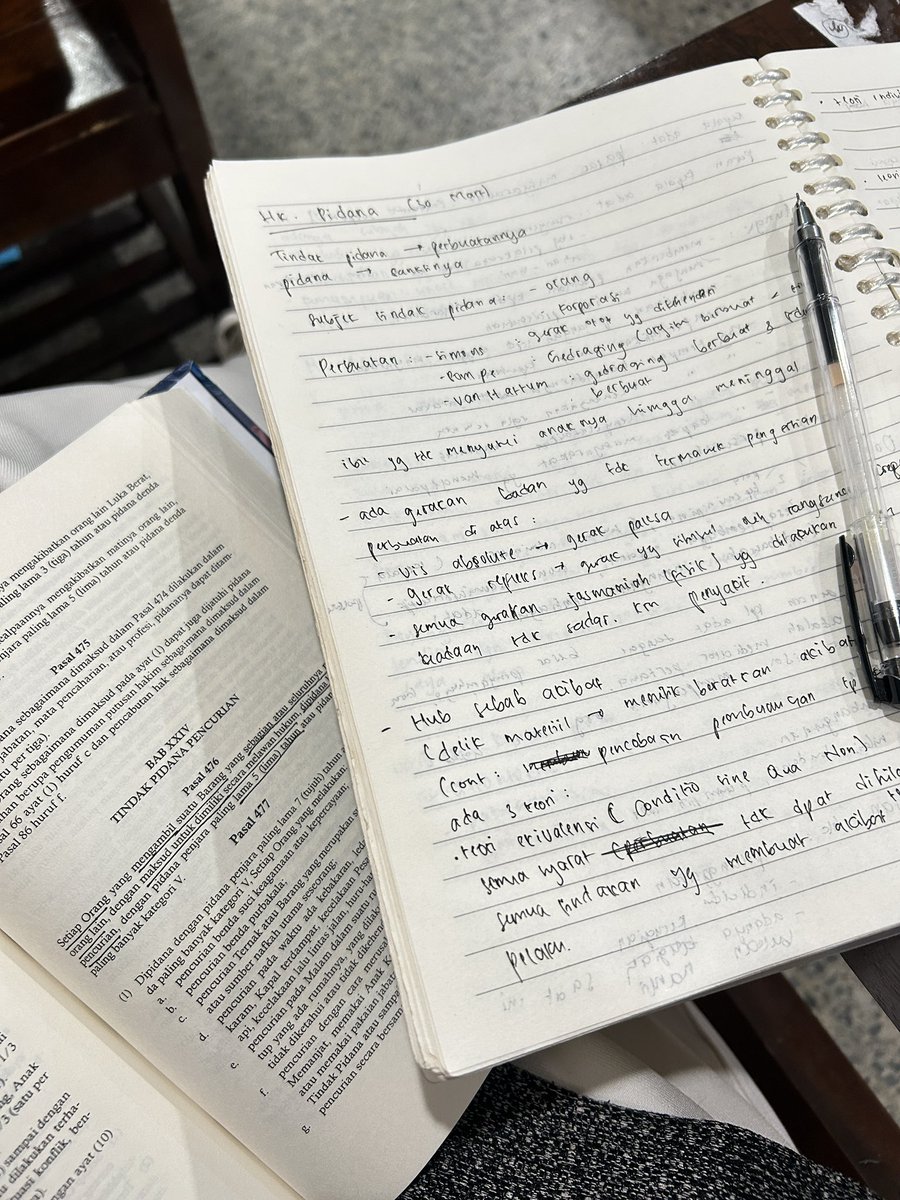 Hk. Pidana (30 Mart)
Tindak pidana → perbuatannya
pidana → sanksinya
Subjek tindak pidana: - orang
korporasi
Perbuatan - Simons : gerak otot yg dikehendaki
- Pompe : Gedraging
- Van Hattum : gedraging berbuat &
berbuat
ibu yg tdk menyusui anaknya hingga meninggal
- ada gerakan badan yg tdk termasuk pengertian
perbuatan di atas :
- Vis absolute → gerak paksa
- gerak refleks → gerak yg timbul
- semua gerakan jasmaniah (fisik) yg dilakukan
keadaan tdk sadar. krn penyakit.
- Hub sebab akibat
(delik materiil → menitik beratkan akibat
(cont : pencobaan pembunuhan
ada 3 teori :
. teori ekivalensi ( Conditio sine qua Non)
semua syarat (perbuatan tdk dpat
semua tindakan yg membuat akibat
pelaku.
. teori
ya mengakibatkan orang lain Luka Berat,
paling lama 3 (tiga) tahun atau pidana denda
ealpaannya mengakibatkan matinya orang lain,
enjara paling lama 5 (lima) tahun atau pidana denda
Pasal 475
ana sebagaimana dimaksud dalam Pasal 474 dilakukan dalam
jabatan, mata pencaharian, atau profesi, pidananya dapat ditam-
tu per tiga).
orang sebagaimana dimaksud pada ayat (1) dapat juga dijatuhi pidana
an berupa pengumuman putusan hakim sebagaimana dimaksud dalam
sal 66 ayat (1) huruf c dan pencabutan hak sebagaimana dimaksud dalam
Pasal 86 huruf f.
BAB XXIV
TINDAK PIDANA PENCURIAN
Pasal 476
Setiap Orang yang mengambil suatu Barang yang sebagian atau seluruhnya
orang lain, dengan maksud untuk dimiliki secara melawan hukum, dipidana
pencurian, dengan pidana penjara paling lama 5 (lima) tahun atau pidana
paling banyak kategori V.
Pasal 477
(1) Dipidana dengan pidana penjara paling lama 7 (tujuh) tahun
da paling banyak kategori V, Setiap Orang yang melakukan:
a. pencurian benda suci keagamaan atau kepercayaan,
b. pencurian benda purbakala;
c. pencurian Ternak atau Barang yang merupakan
atau sumber nafkah utama seseorang;
d. pencurian pada waktu ada kebakaran,
karam, Kapal terdampar, kecelakaan
api, kecelakaan lalu lintas jalan,
e. pencurian pada Malam dalam suatu
tup yang ada rumahnya, yang
tidak diketahui atau tidak
f. pencurian dengan cara
Memanjat, memakai Anak
atau memakai pakaian jabatan
g. Tindak Pidana atau
pencurian secara bersama
1/3
g. Anak
/3 (satu per
) sampai dengan
u dilakukan terha-
tuasi konflik, ben-
ngan ayat (10)